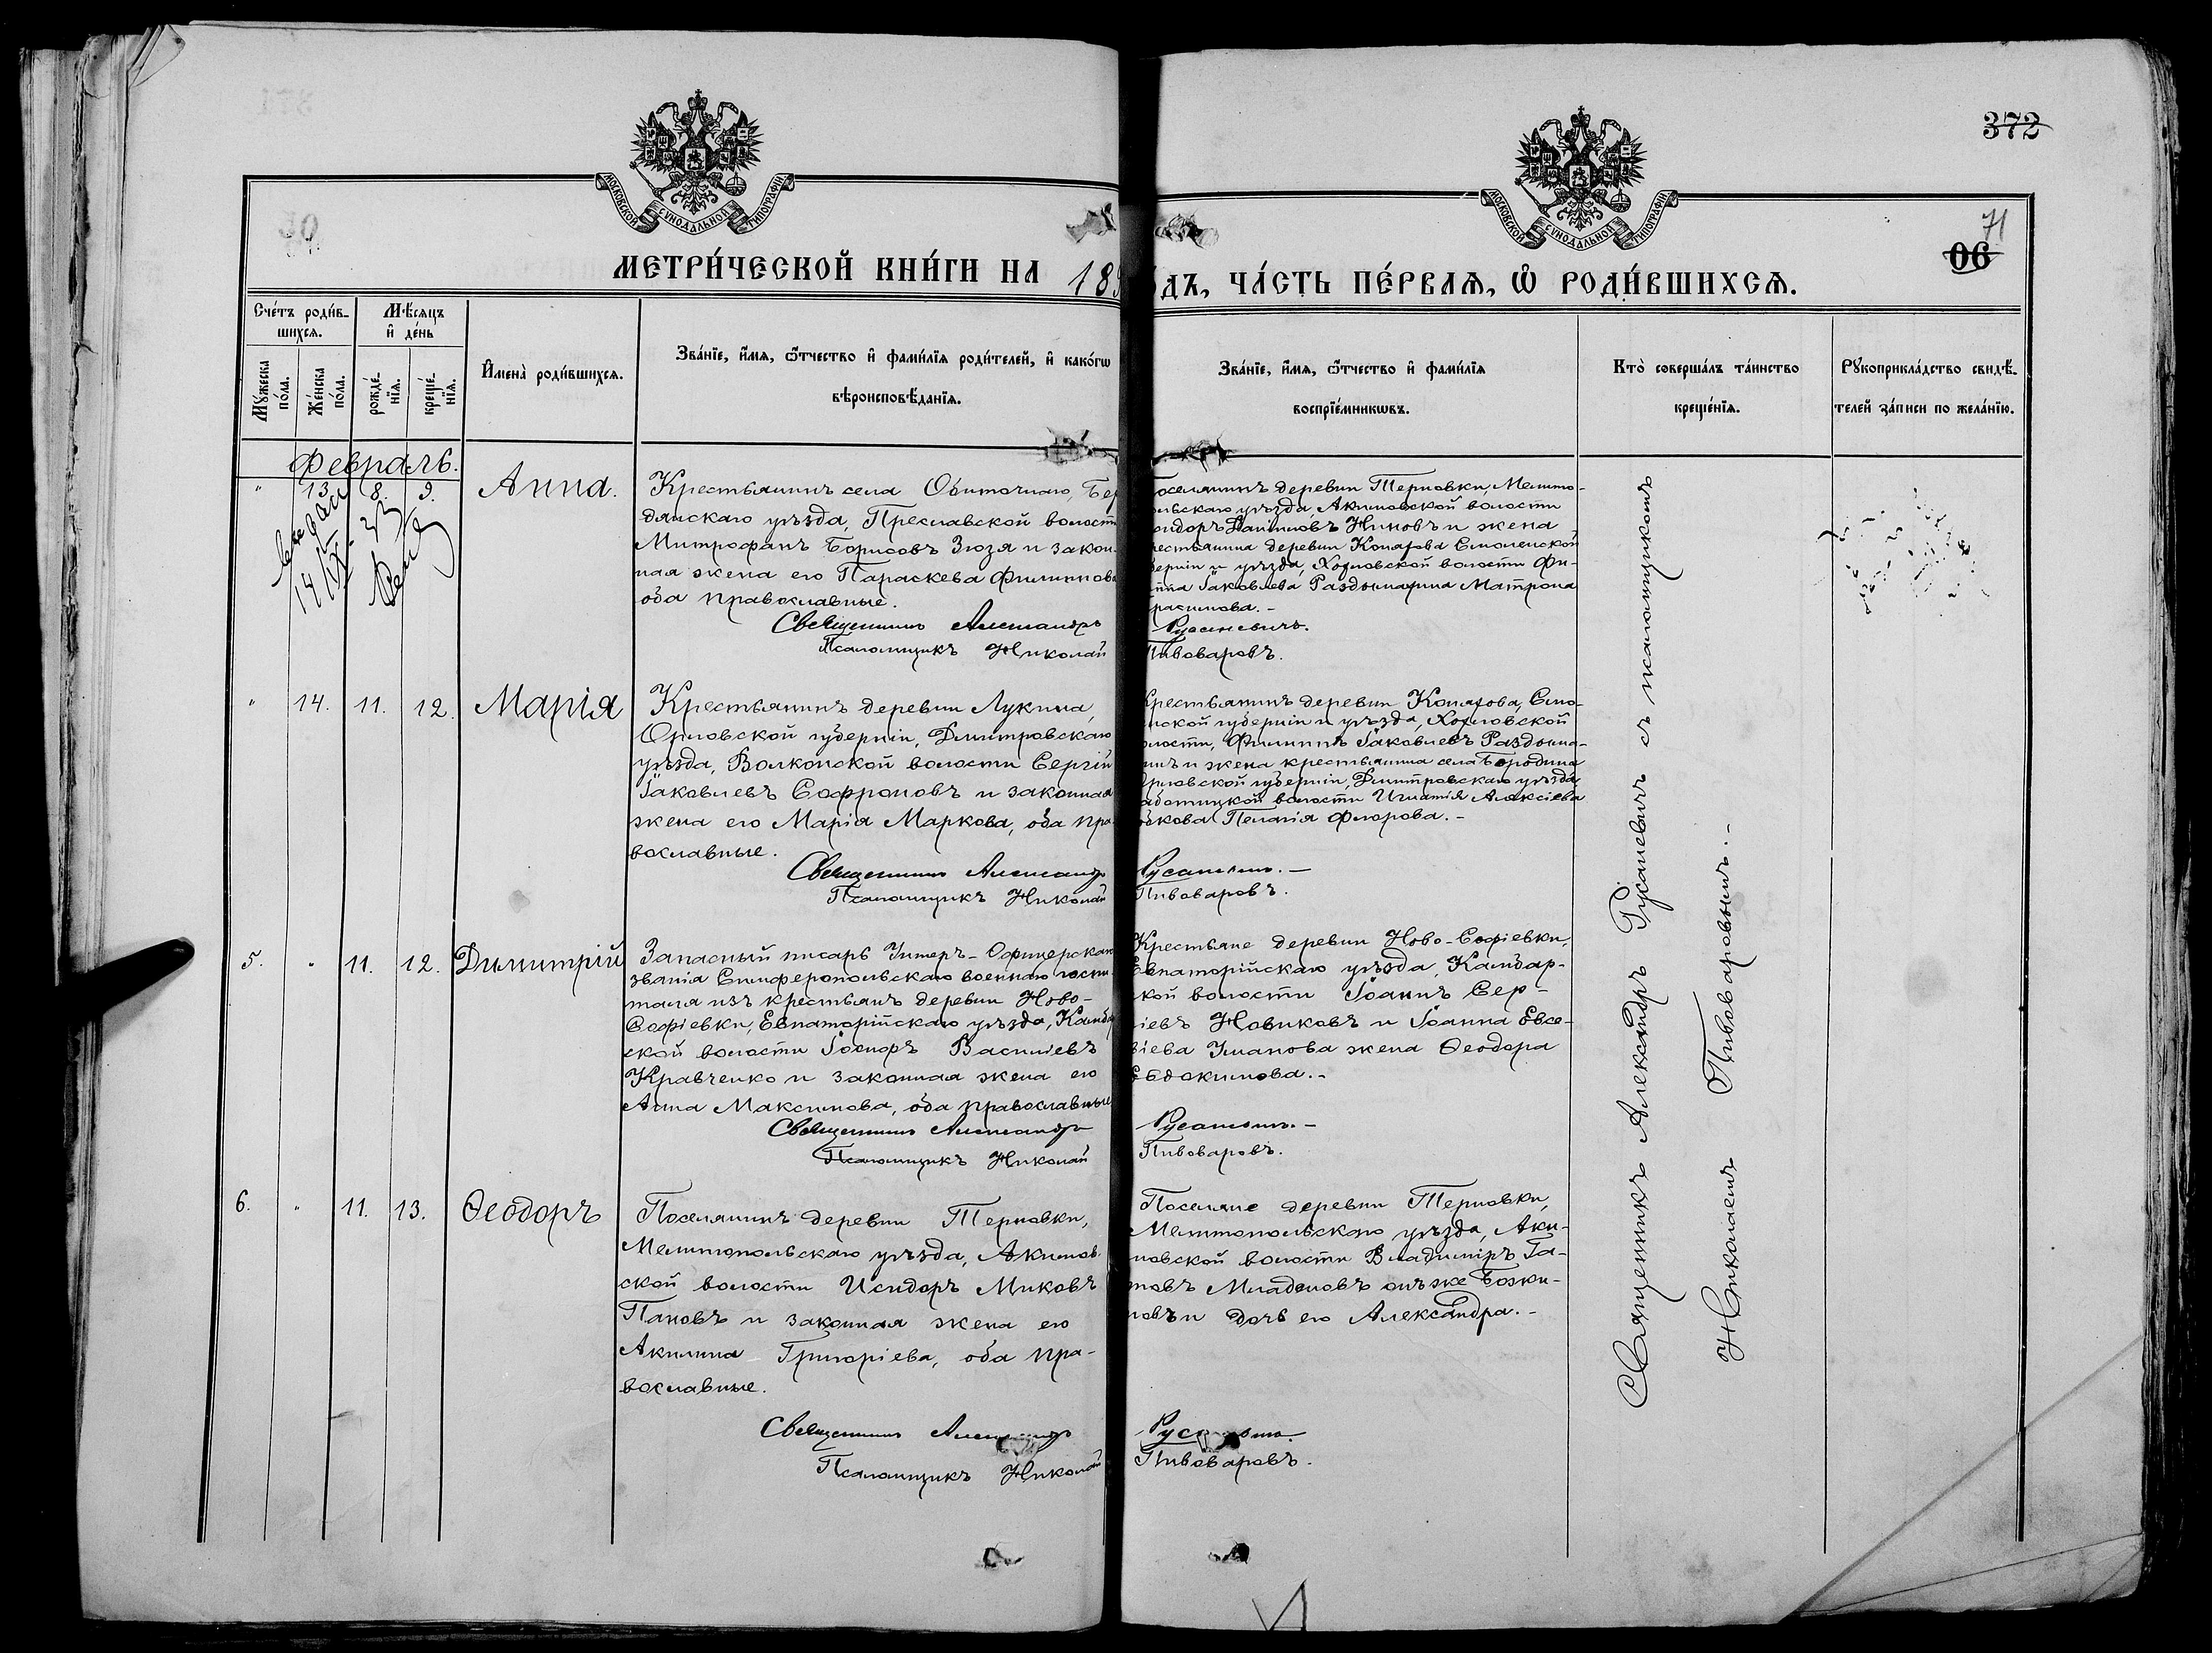 372
71
06
МОСКОВСКОЙ СУНОДАЛЬНОЙ ТИПОГРАФІИ
МОСКОВСКОЙ СУНОДАЛЬНОЙ ТИПОГРАФІИ
МЕТРИ́ЧЕСКОЙ КНИ́ГИ НА 189
ОДЪ, ЧА́СТЬ ПЕ́РВАѦ, Ѡ РОДИ́ВШИХСѦ.
Сче́тъ роди́в-
шихся.
Мѣ́сяцъ
и҆ де́нь
Мꙋ́жеска
по́ла.
Же́нска
по́ла.
рожде́-
нїя.
креще́-
нїя.
И҆мена̀ роди́вшихся.
Зва́нїе, и҆́мя, ѻ҆́тчество и҆ фами́лїя роди́телей, и҆ како́гѡ
вѣроисповѣ́данїя.
Зва́нїе, и҆́мя, ѻ҆́тчество и҆ фами́лїя
воспрїе́мникѡвъ.
Кто̀ соверша́лъ та́инство
креще́нїя.
Рꙋкоприкла́дство свидѣ́-
телей за́писи по жела́нїю.
Февраль.
" 13. 8. 9. Анна.
Крестьянинъ села Обиточнаго, Бер
дянскаго уѣзда, Преславской волости
Митрофанъ Борисовъ Зюзя и закон-
ная жена его Параскева Филиппова
оба православные.
Священникъ Александръ
Псаломщикъ Николай
оселянинъ деревни Терновки, Мелито-
ольскаго уѣзда, Акимовской волости
Ниновъ и жена
рестьянина деревни Смоленской
берніи и уѣзда, Хохловской волости Фи-
ппа Іаковлева Матрона
расимова.-
Русаневичъ.
Пивоваровъ.
" 14. 11. 12. Марія
Крестьянинъ деревни Лукина,
Орловской губерніи, Дмитровскаго
уѣзда, Волконской волости Сергій
Іаковлевъ Софроновъ и законная
жена его Марія Маркова, оба пра-
вославные.
Священникъ Александръ
Псаломщикъ Николай
Крестьянинъ деревни Смо-
нской губерніи и уѣзда, Хохловской
олости, Филиппъ Іаковлевъ
инъ и жена крестьянина села Бородина
Орловской губерніи, Дмитровскаго уѣзда
волости Игнатія Алексіева
Пелагія Флорова.-
Русаневичъ.-
Пивоваровъ.
5. " 11. 12. Димитрій
Запасный писарь Унтеръ-Офицерскаго
званія Симферопольскаго военнаго госпи-
таля изъ крестьянъ деревни Ново-
Софіевки, Евпаторійскаго уѣзда, Камбар
ской волости Іосифъ Васильевъ
Кравченко и законная жена его
Анна Максимова, оба православные
Священникъ Александръ
Псаломщикъ Николай
Крестьяне деревни Ново-Софіевки,
Евпаторійскаго уѣзда, Камбар-
кой волости Іоаннъ Сер-
гіевъ Новиковъ и Іоанна Евсе-
віева Уманова жена Ѳеодора
Евдокимова.-
Русаневичъ.-
Пивоваровъ.
6. " 11. 13. Ѳеодоръ
Поселянинъ деревни Терновки,
Мелитопольскаго уѣзда, Акимов-
ской волости Исидоръ Миковъ
Пановъ и законная жена его
Акилина Григоріева, оба пра-
вославные.
Священникъ Александръ
Псаломщикъ Николай
Поселяне деревни Терновки,
Мелитопольскаго уѣзда, Аки-
мовской волости Владиміръ Га-
новъ Младеновъ онъ же Божи-
новъ и дочь его Александра.-
Русаневичъ.
Пивоваровъ.
Священникъ Александръ Русаневичъ съ псаломщикомъ
Николаемъ Пивоваровымъ.-